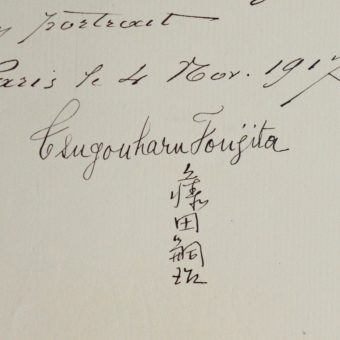 portrait
Paris le 4 Nov. 1917
Tsugouharu Foujita
藤田嗣治